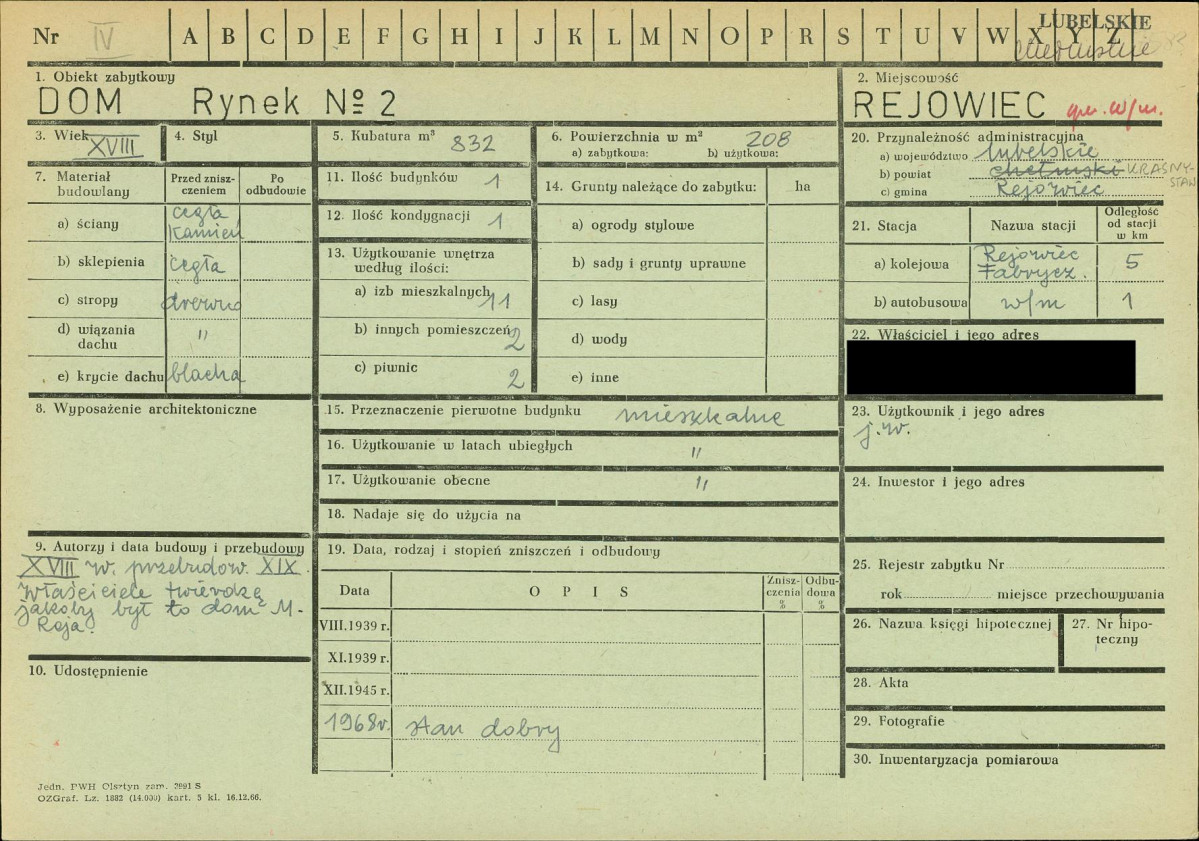 Nr IV A B C D E F G H I J K L M N O P R S T U V W X Y Z LUBELSKIE
1. Obiekt zabytkowy
DOM Rynek № 2
2. Miejscowość
REJOWIEC gm. w/m.
3. Wiek XVIII
4. Styl
5. Kubatura m³ 832
6. Powierzchnia w m² 208
a) zabytkowa: b) użytkowa:
7. Materiał budowlany
Przed zniszczeniem
Po odbudowie
a) ściany cegła
kamień
b) sklepienia cegła
c) stropy drewno
d) wiązania dachu "
e) krycie dachu blacha
8. Wyposażenie architektoniczne
9. Autorzy i data budowy i przebudowy
XVIII w. przebudow. XIX
właściciele twierdzą
jakoby był to dom M-
Reja.
10. Udostępnienie
11. Ilość budynków 1
12. Ilość kondygnacji 1
13. Użytkowanie wnętrza
według ilości:
a) izb mieszkalnych 11
b) innych pomieszczeń 2
c) piwnic 2
14. Grunty należące do zabytku: ha
a) ogrody stylowe
b) sady i grunty uprawne
c) lasy
d) wody
e) inne
15. Przeznaczenie pierwotne budynku mieszkalne
16. Użytkowanie w latach ubiegłych "
17. Użytkowanie obecne "
18. Nadaje się do użycia na
19. Data, rodzaj i stopień zniszczeń i odbudowy
Data O P I S Zniszczenia % Odbudowa %
VIII.1939 r.
XI.1939 r.
XII.1945 r.
1968r. stan dobry
20. Przynależność administracyjna
a) województwo lubelskie
b) powiat chełmski KRASNY-
STAW
c) gmina Rejowiec
21. Stacja Nazwa stacji Odległość od stacji w km
a) kolejowa Rejowiec
Fabrycz. 5
b) autobusowa w/m 1
22. Właściciel i jego adres
23. Użytkownik i jego adres
j.w.
24. Inwestor i jego adres
25. Rejestr zabytku Nr
rok miejsce przechowywania
26. Nazwa księgi hipotecznej
27. Nr hipoteczny
28. Akta
29. Fotografie
30. Inwentaryzacja pomiarowa
Jedn. PWH Olsztyn zam. 3991 S
OZGraf. Lz. 1882 (14.000) kart. 5 kl. 16.12.66.